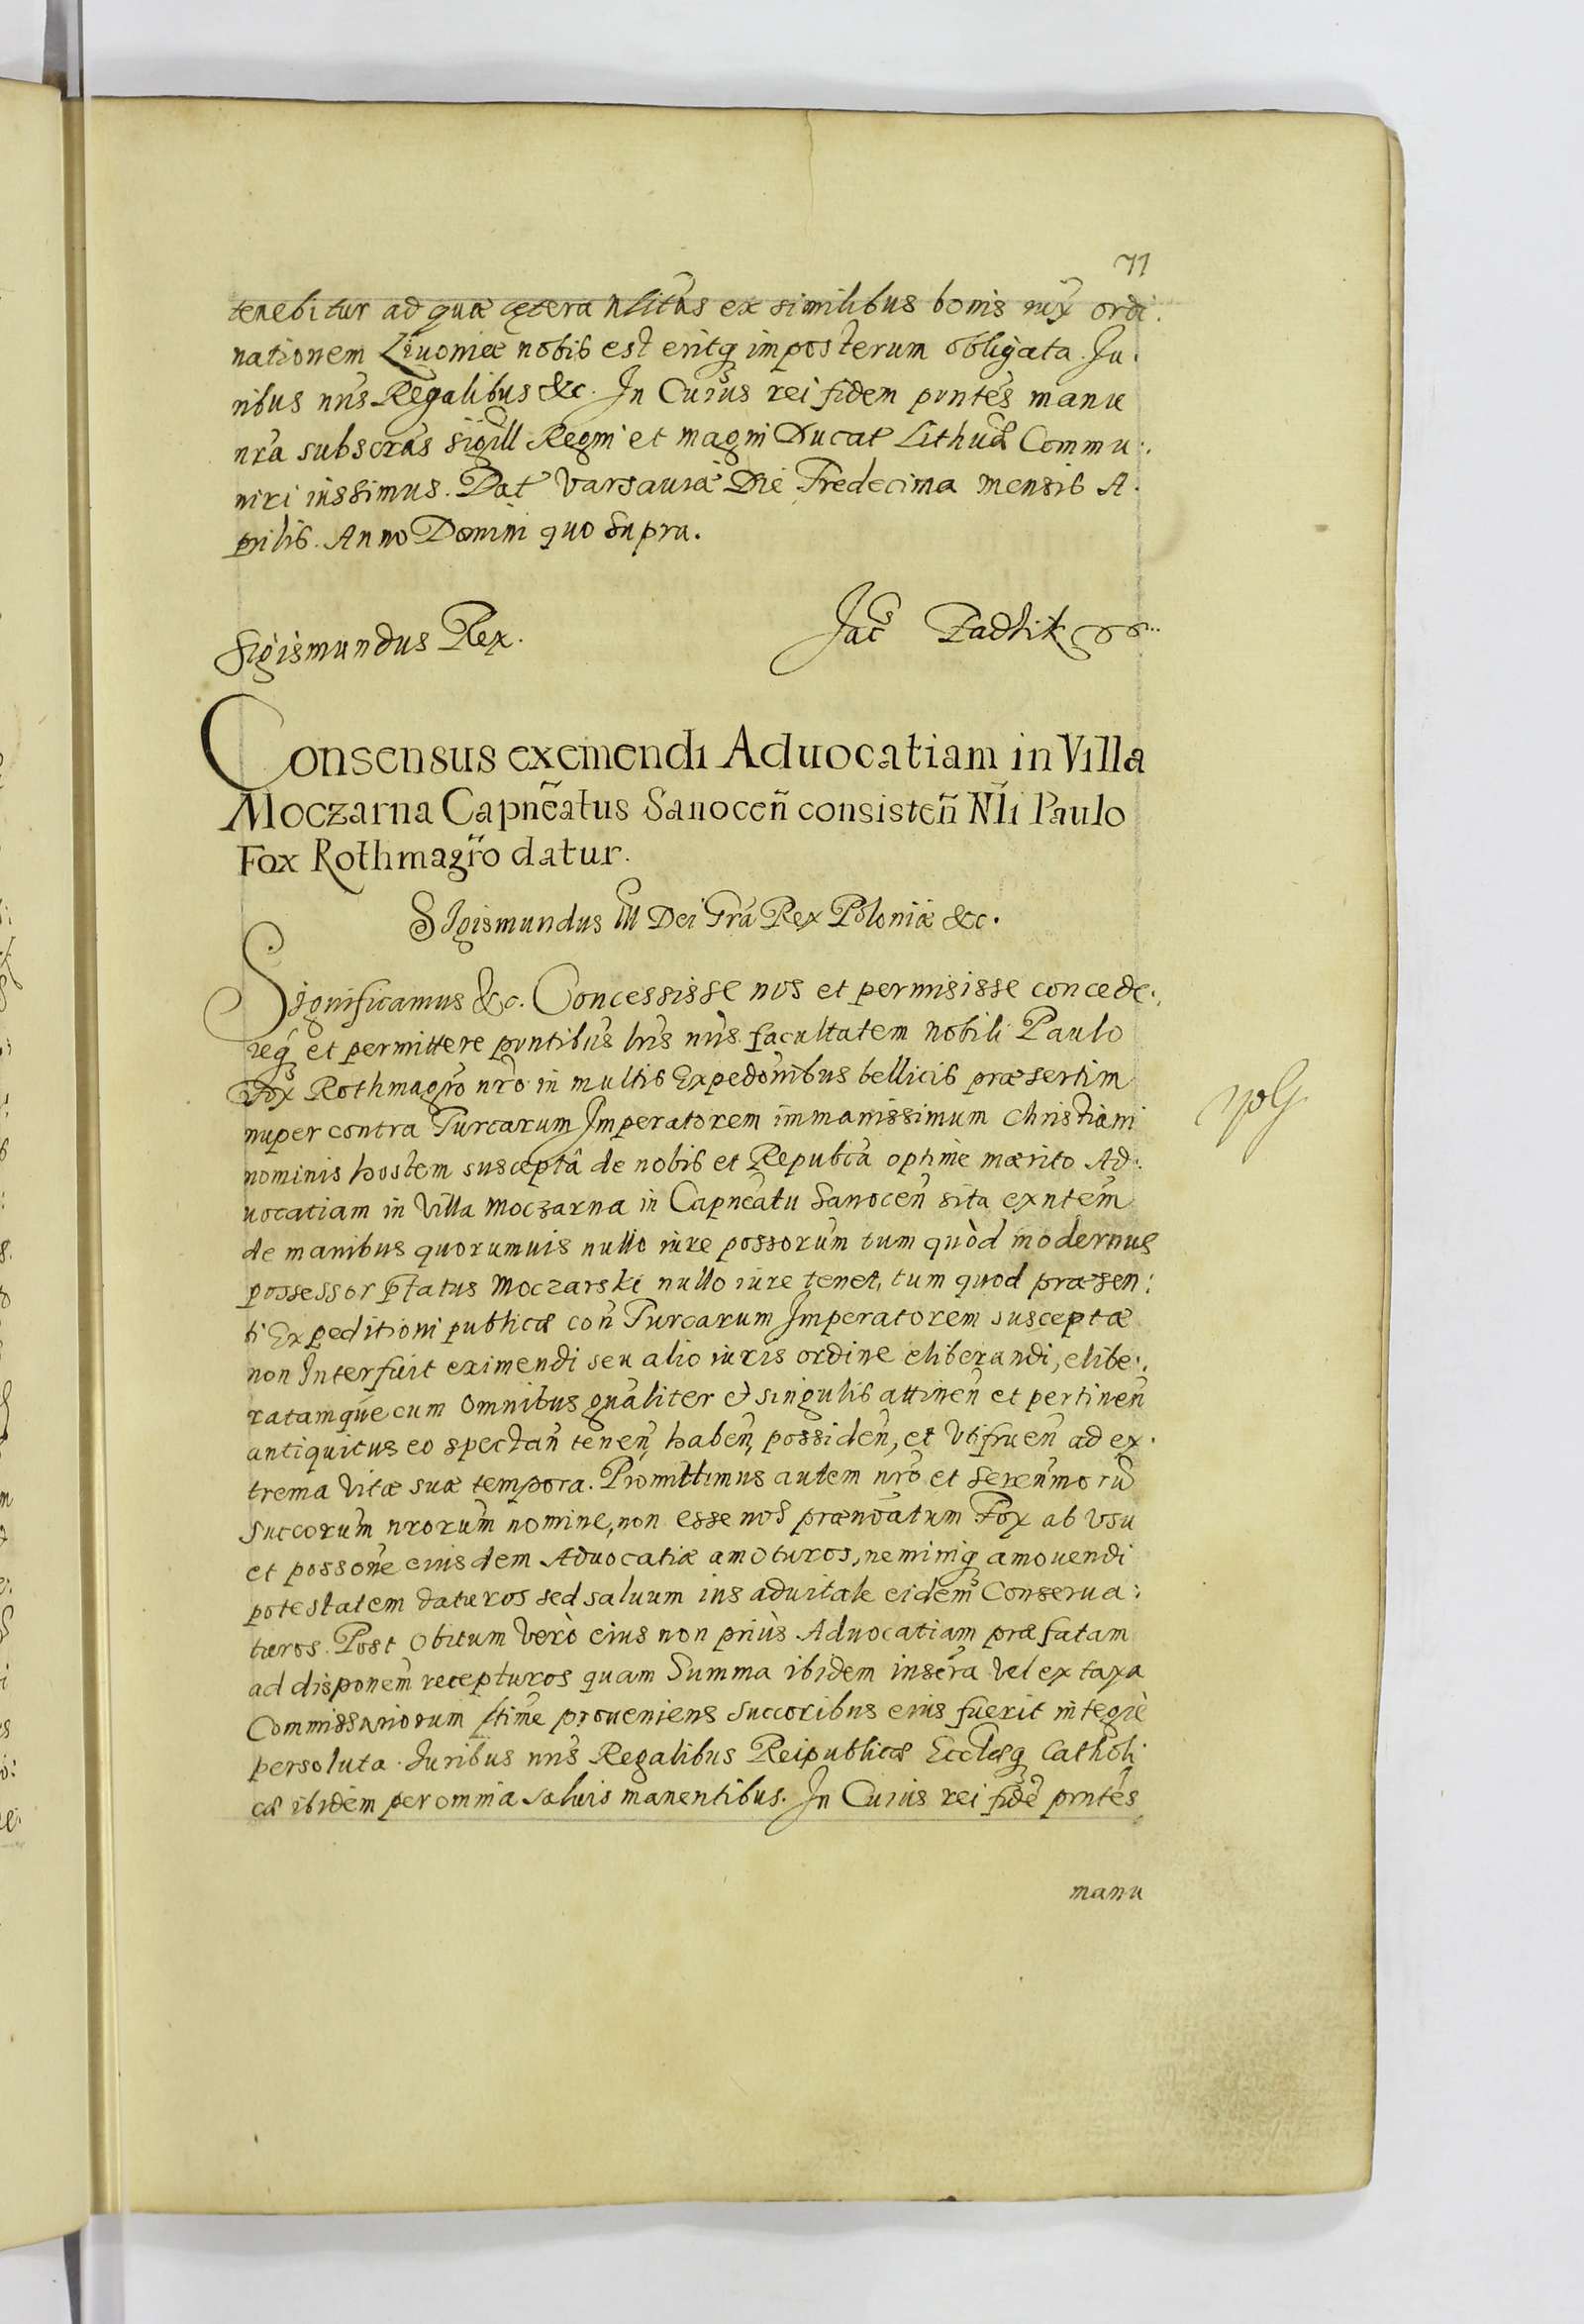 71
tenebitur ad quæ cętera nlitas ex similibus bonis iux ordi:
nationem Liuoniæ nobis est eritq imposterum obligata. Iu:
ribus nris Regalibus &c. In Cuius rei fidem pñtes manu
nra subscras sigill Regni et magni Ducat Lithua Commu:
niri iussimus. Dat Varsauiæ Die Tredecima mensis A:
prilis. Anno Domini quo Supra.
Sigismundus Rex. Jacs Zadzik
Consensus exemendi Aduocatiam in Villa
Moczarna Capnẽatus Sanoceñ consisteñ Nli Paulo
Fox Rothmagr̃o datur.
SIgismundus III Dei Gra Rex Poloniæ &c.
Significamus &c. Concessisse nos et permisisse concede:
req et permittere pñtibus lris nris facultatem nobili Paulo
Fox Rothmagro nro in multis Expedonibus bellicis præsertim
nuper contra Turcarum Imperatorem immanissimum Christiani
nominis hostem susceptâ de nobis et Repubca optime mærito Ad:
uocatiam in Villa Moczarna in Capneatu Sanoceñ sita exñtem
de manibus quorumuis nullo iure possorum tum quòd modernus
possessor Ptatus Moczarski nullo iure tenet, tum quod præsen:
ti Expeditioni publicæ coñ Turcarum Imperatorem susceptæ
non Interfuit eximendi seu alio iuris ordine eliberandi, elibe:
ratamque cum omnibus gñaliter et singulis attineñ et pertineñ
antiquitus eo spectañ teneñ, habeñ, possideñ, et Vtifrueñ ad ex:
trema vitæ suæ tempora. Promittimus autem nro et Sereñmorũ
Succorum nrorum nomine, non esse nos prænoatum Fox ab vsu
et possone eiusdem Aduocatiæ amoturos, neminiq amouendi
potestatem daturos sed saluum ius aduitale eidem Conserua:
turos. Post obitum verò eius non priùs Aduocatiam præfatam
ad disponem recepturos quam Summa ibidem inscra vel ex taxa
Commissariorum ltime proueniens Succoribus eius fuerit integrè
persoluta. Iuribus nris Regalibus Reipublicæ Ecclæq Catholi
cæ ibidem per omnia saluis manentibus. In Cuius rei fidẽ pñtes
manu